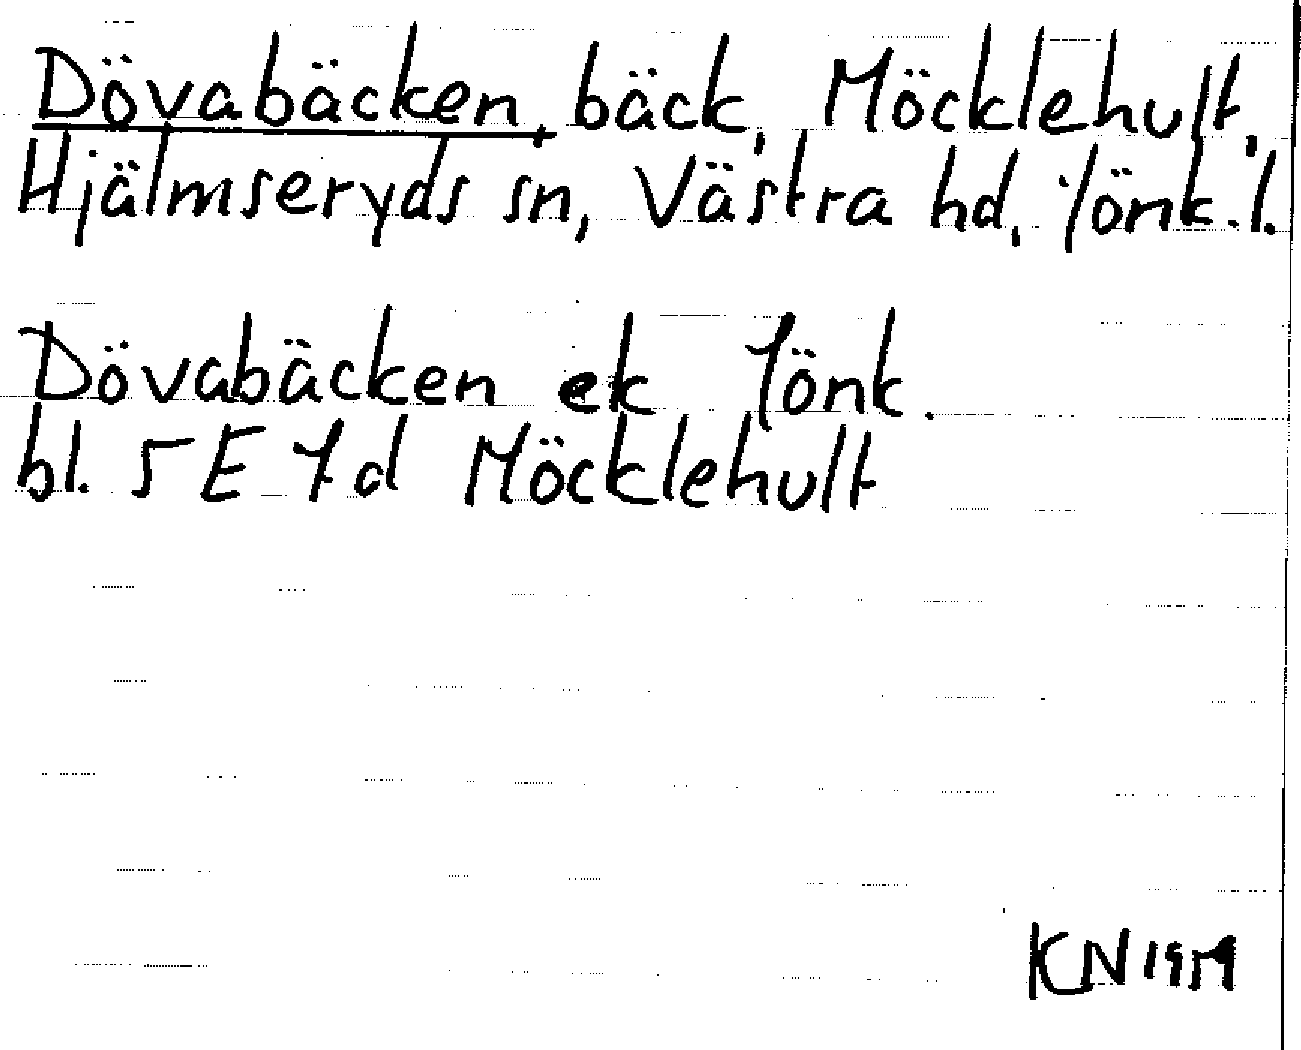 Dövabäcken, bäck, Möcklehult,
Hjälmseryds sn, Västra hd, Jönk. l.
Dövabäcken ek Jönk.
bl. 5 E 7d Möcklehult
KN